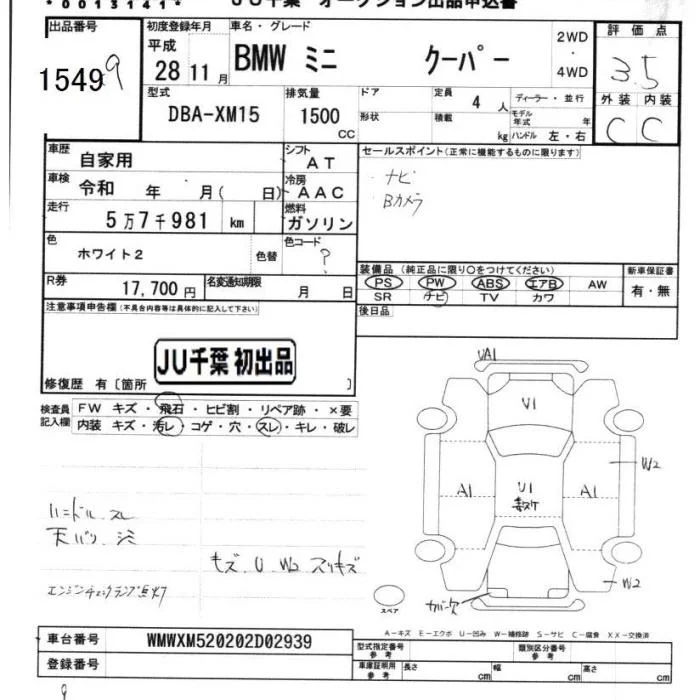 *0013141* JU千葉 オークション出品申込書
出品番号 初度登録年月 車名・グレード 2WD・4WD 評価点
15499 平成28年11月 BMW ミニ クーパー 3.5
型式 排気量 ドア 定員 4人 ディーラー・並行 外装 内装
DBA-XM15 1500CC 形状 積載 kg モデル年式 年 ハンドル 左・右 C C
車歴 自家用 シフト AT セールスポイント(正常に機能するものに限ります)
車検 令和 年 月( 日) 冷房 AAC ・ナビ
走行 5万7千981 km 燃料 ガソリン Bカメラ
色 ホワイト2 色替 色コード ?
R券 17,700円 名変通知期限 月 日
装備品(純正品に限り○をつけてください) 新車保証書
PS PW ABS エアB AW 有・無
SR ナビ TV カワ
注意事項申告欄(不具合内容等は具体的に記入して下さい) 後日品
JU千葉 初出品
修復歴 有〔箇所 〕
検査員記入欄 FW キズ・飛石・ヒビ割・リペア跡・×要
内装 キズ・汚レ・コゲ・穴・スレ・キレ・破レ
UA1
U1
W2
A1 U1 A1
ハンドル スレ
天バリ
キズ U W2 スリキズ
エンジンチェックランプ点灯
W2
カバー欠
スペア
A-キズ E-エクボ U-凹み W-補修跡 S-サビ C-腐食 XX-交換済
車台番号 WMWXM520202D02939 型式指定番号 参考 類別区分番号 参考
登録番号 車庫証明用 参考 長さ cm 幅 cm 高さ cm